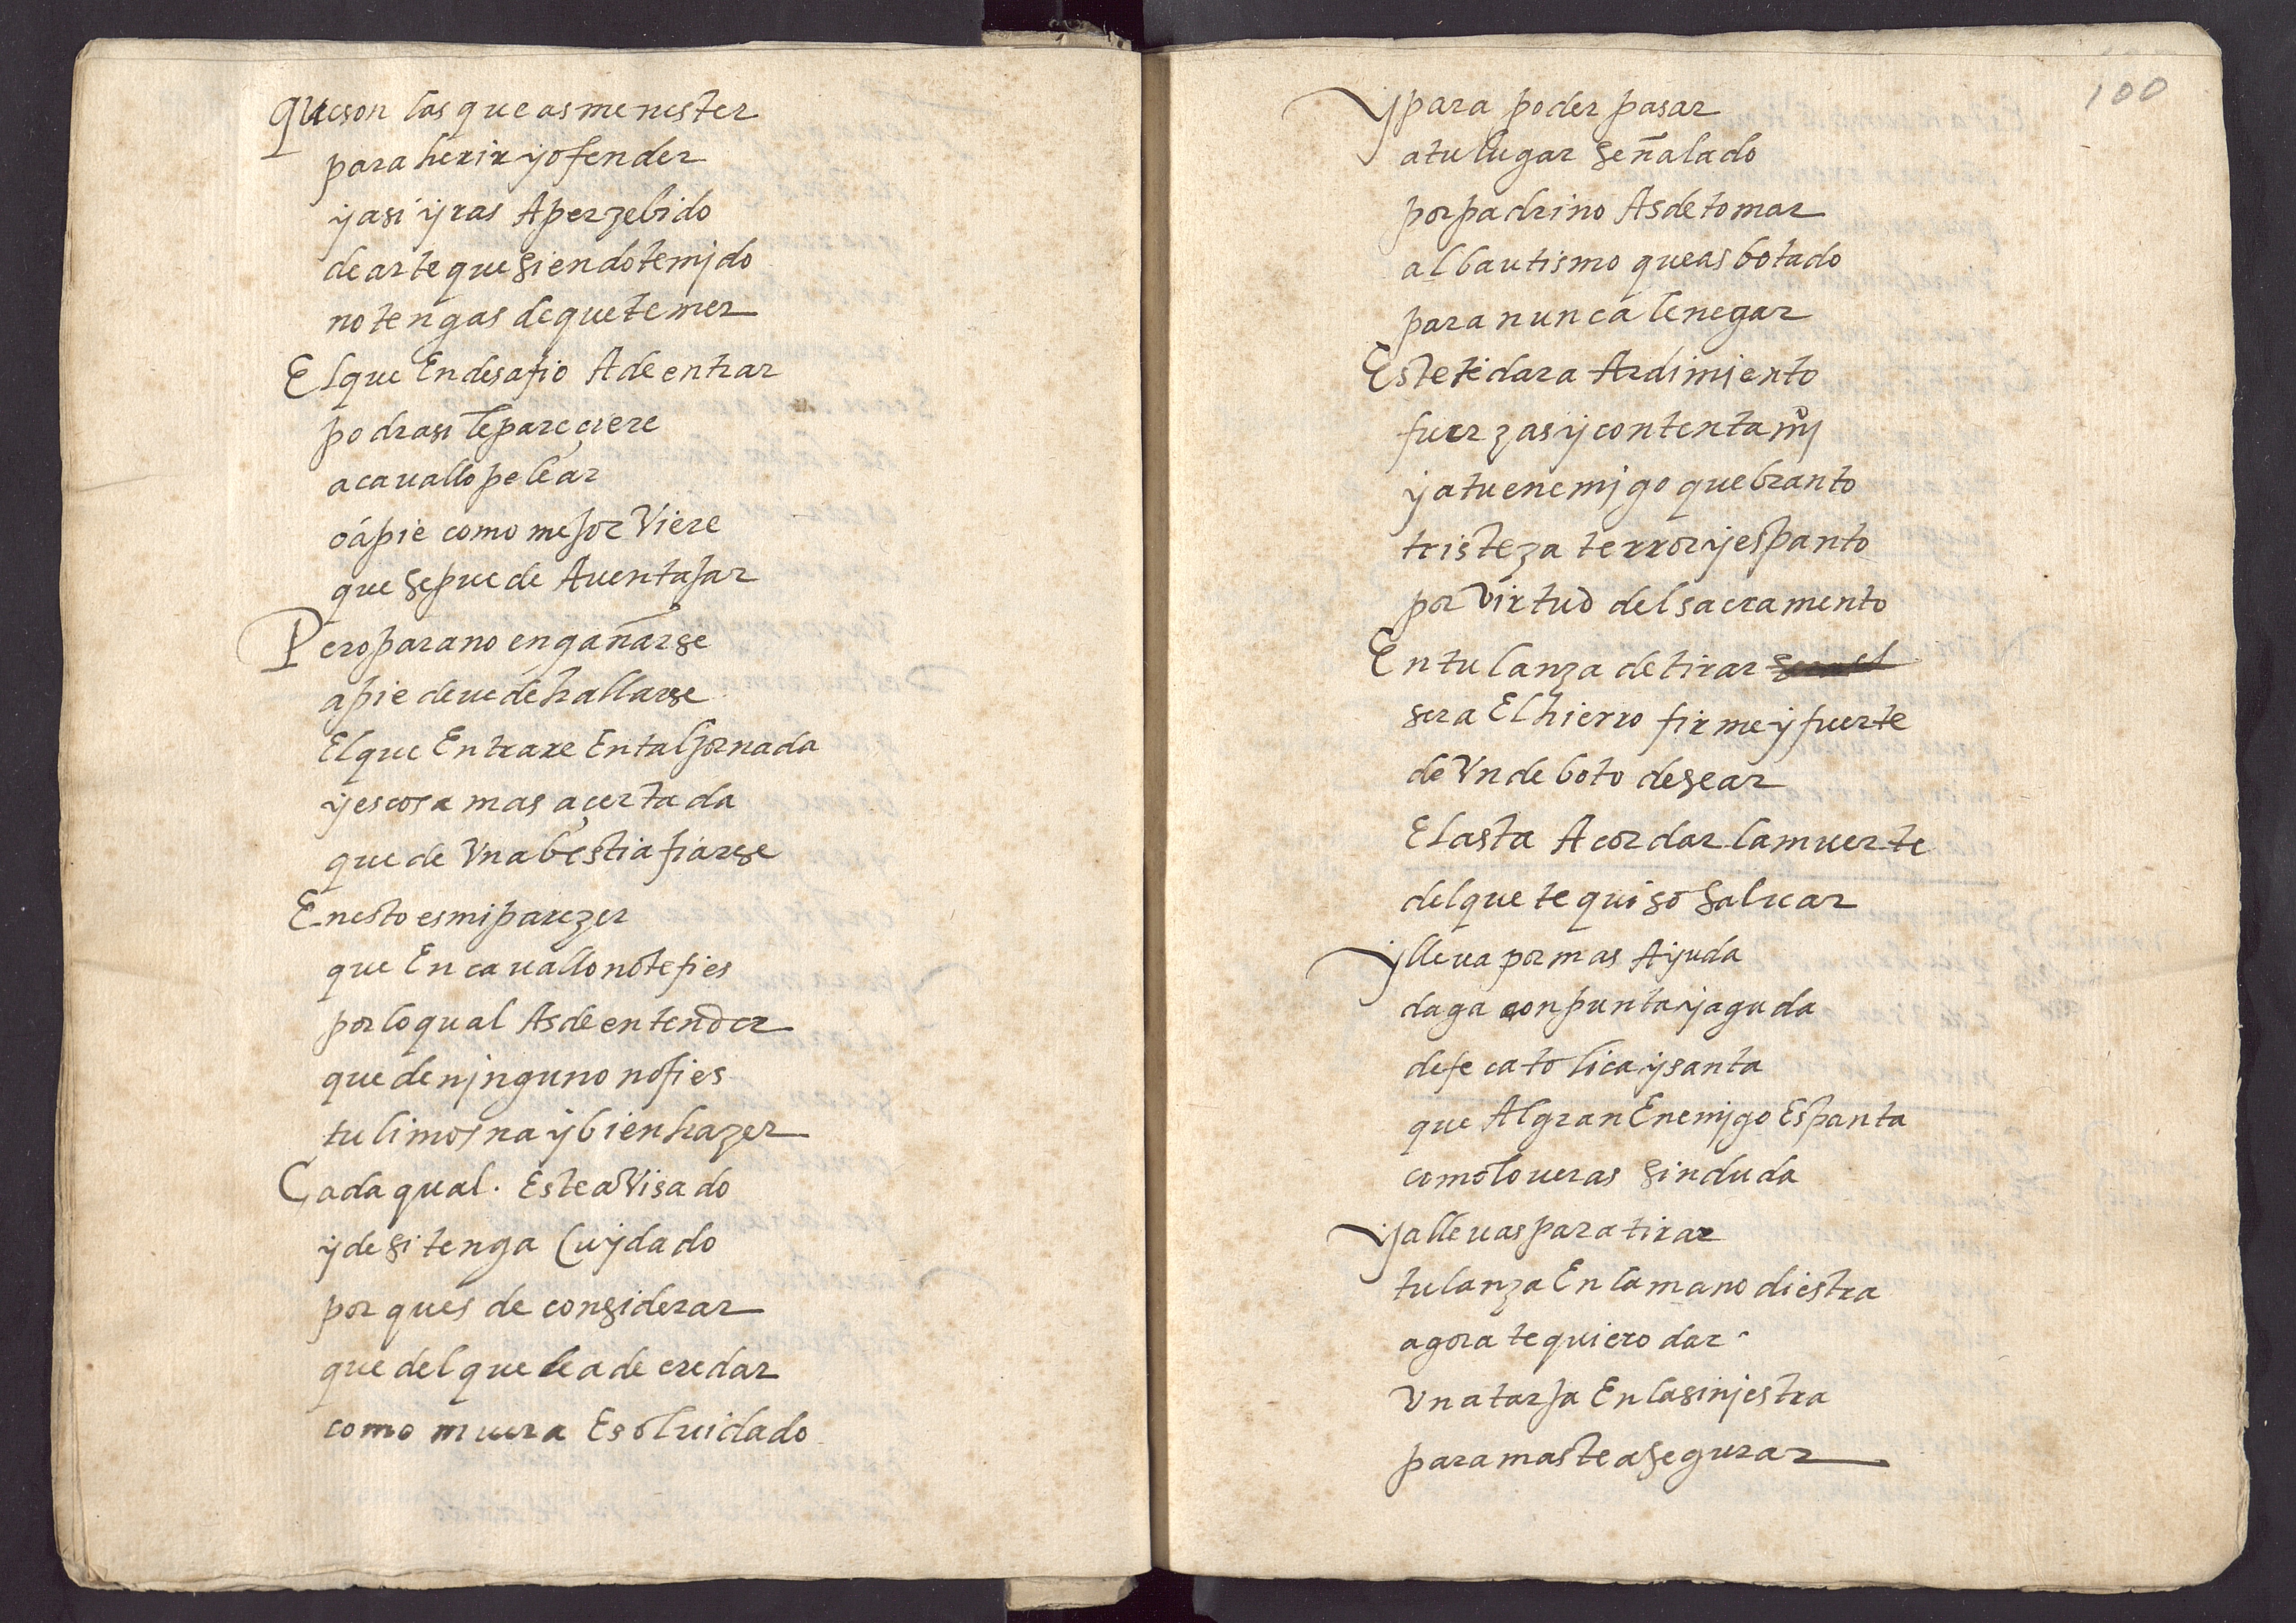 Queson las que as menester
para herir y ofender
y asi yras Aperzebido
de arte que siendo temjdo
no tengas de que temer
El que En desafio A de entrar
podra si le pareçiere
a cauallo pelear
o á pie como mejor Viere
que se puede Auentajar
Pero para no engañarse
a pie deue de hallarse
El que Entrare En tal jornada
y es cosa mas açertada
que de Vna bestia fiarse
En esto es mi parezer
que En cauallo no te fies
por lo qual As de entender
que de njnguno no fies
tu limosna y bien hazer
Cada qual . Este aVisado
y de si tenga Cuydado
por ques de considerar
que del que le a de eredar
como muera Es oluidado
100
Y para poder pasar
a tu lugar señalado
por padrino As de tomar
al bautismo que as botado
para nunca le negar
Este te dara Ardimiento
fuerzas y contentamy
y a tu enemjgo quebranto
tristeza terror y espanto
por Virtud del sacramento
En tu lanza de tirar
sera El hierro firme y fuerte
de Vn deboto desear
El asta Acordar la muerte
del que te quiso saluar
Y lleua por mas Ayuda
daga con punta y aguda
de fe catolica y santa
que Al gran Enemjgo Espanta
como lo ueras sin duda
Ya lleuas para tirar
tu lanza En la mano diestra
agora te quiero dar
Vna tarja En la sinjestra
para mas te asegurar